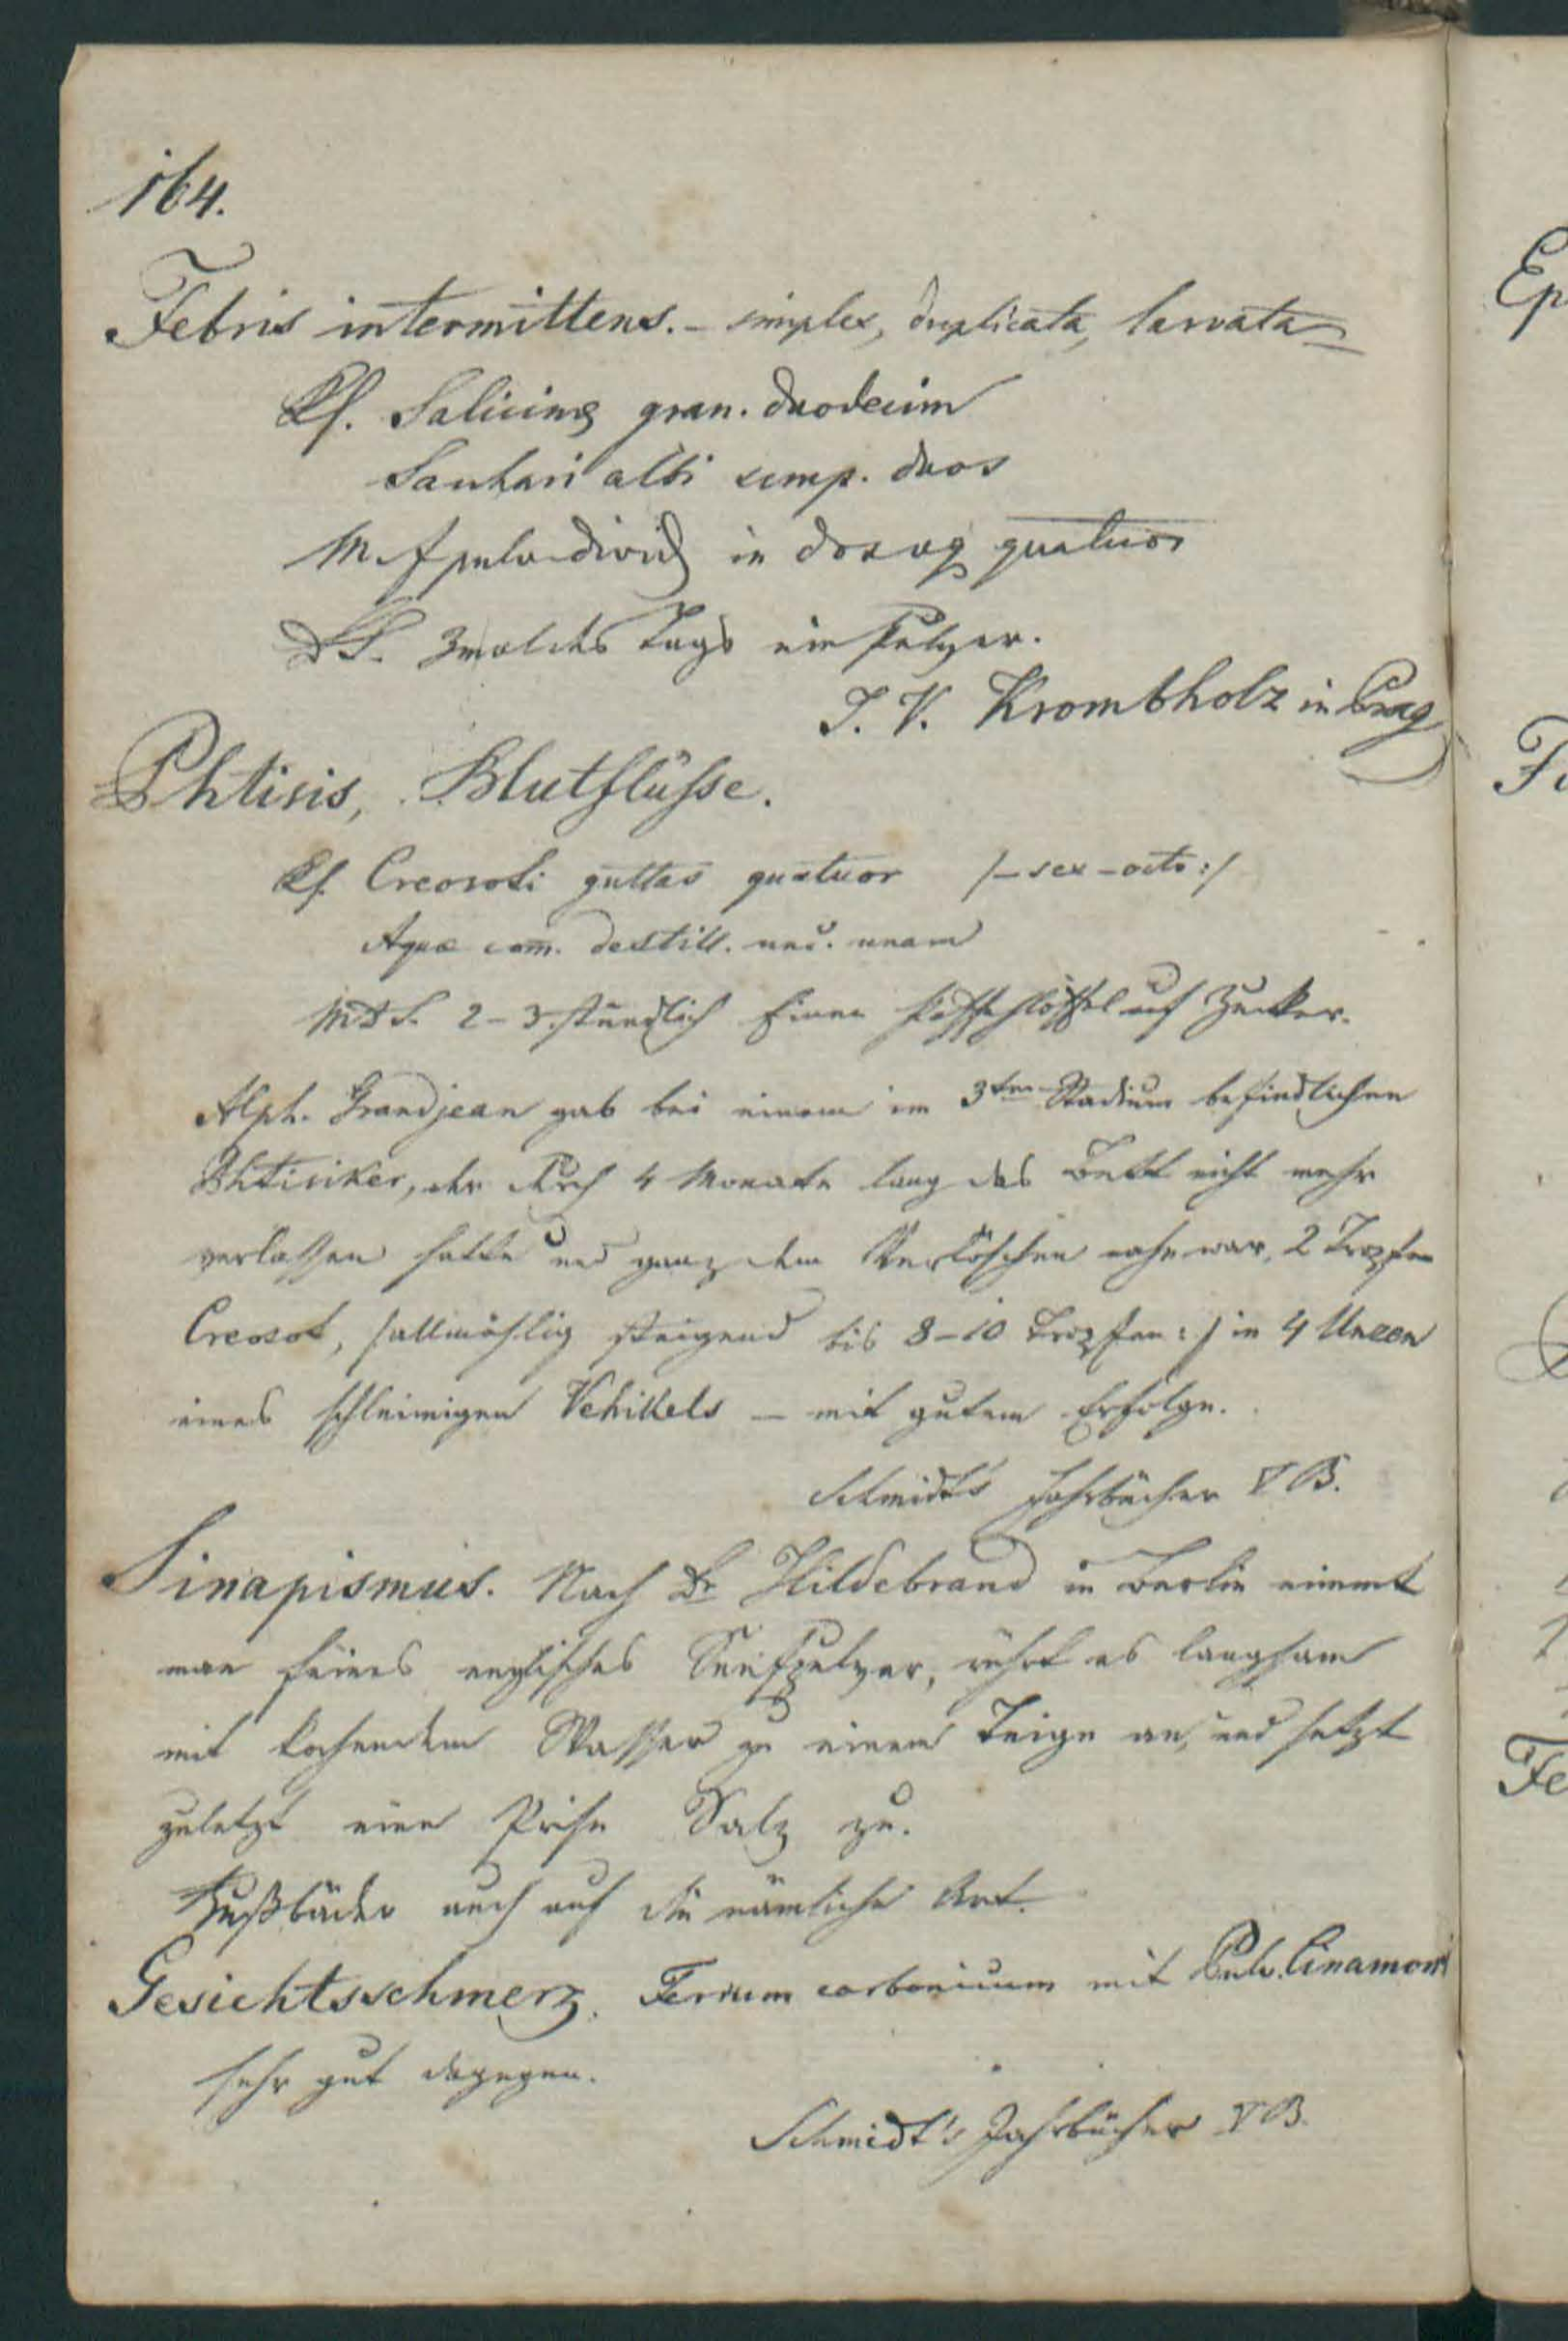 164.
Febris intermittens. - simplex, duplicata, larvata
Rf. Salicins gran. duodecim
Sachari albi scrup. duos
M. f. pulv. divid. in doses quatuor
DS. 2mal des Tags ein Pulver.
J. V. Krombholz in Prag
Phtisis, Blutflüsse.
Rf. Creosoti guttas quatuor /- sex - octo :/
Aquæ com. destill. unc. unam
MDS. 2-3 stündlich Einen Kaffehlöffel auf Zucker.
Alph. Grandjean gab bei einem im 3ten Stadium befindlichen
Phtisiker, der durch 4 Monate lang das Bett nicht mehr
verlassen hatte und ganz dem Verlöschen nahe war, 2 Tropfen
Creosot, /allmählig steigend bis 8-10 Tropfen :/ in 4 Unzen
eines schleimigen Vehikels - mit gutem Erfolge.
Schmidt's Jahrbücher V B.
Sinapismus. Nach Dr Hildebrand in Berlin nimmt
man feines englisches Senfpulver, rührt es langsam
mit kochendem Wasser zu einem Teige an, und setzt
zuletzt eine Prise Salz zu.
Fußbäder auch auf die nämliche Art.
Gesichtsschmerz. Ferrum carbonicum mit Pulv. Cinamomi
sehr gut dagegen.
Schmidt's Jahrbücher V B.
Ep
Fe